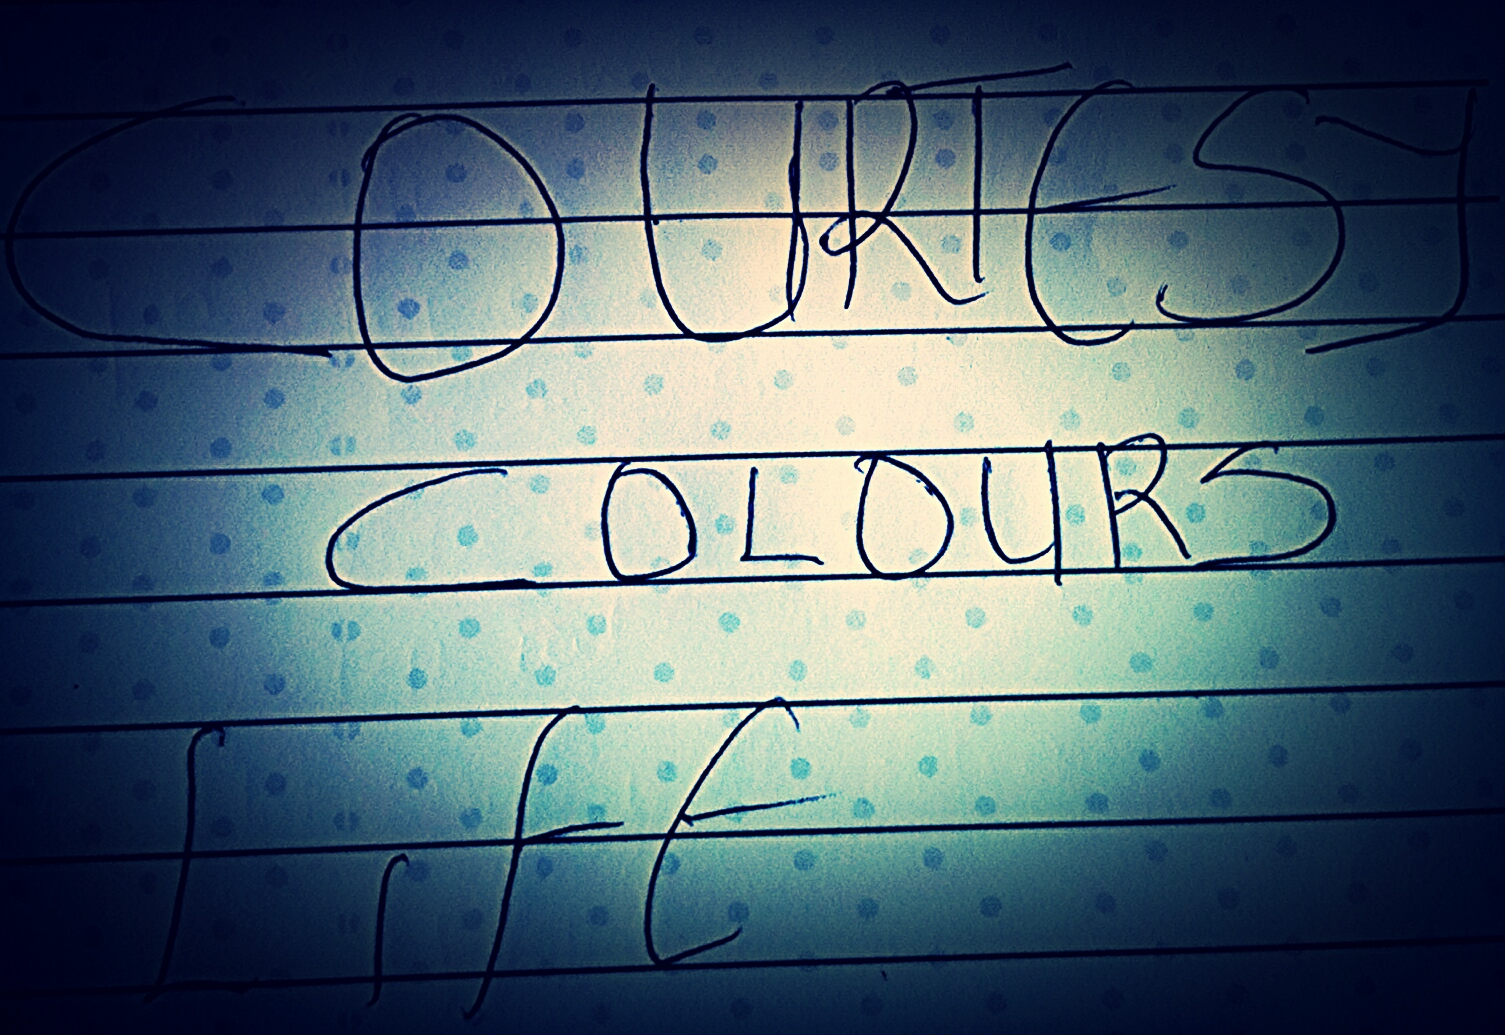 COURTESY
COLOURS
LIFE